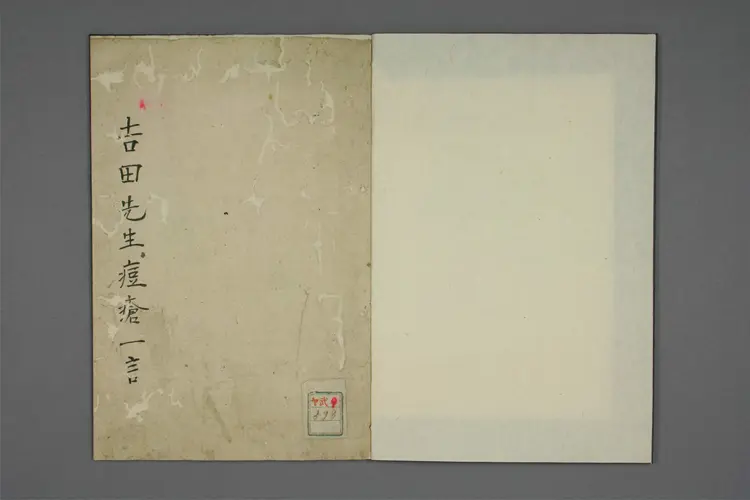 吉田先生痘瘡一言